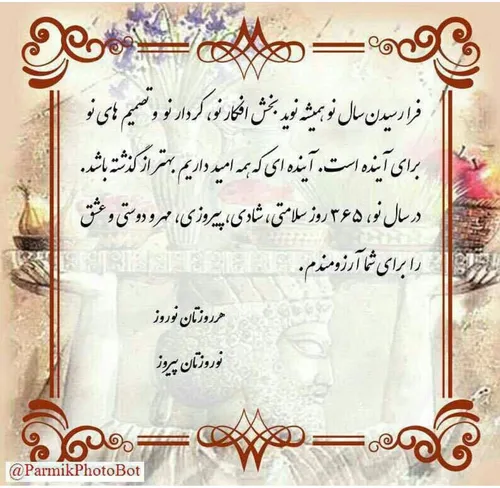 فرا رسیدن سال نو همیشه نوید بخش افکار نو، کردار نو و تصمیم های نو
برای آینده است. آینده ای که همه امید داریم بهتر از گذشته باشد.
در سال نو، ۳۶۵ روز سلامتی، شادی، پیروزی، مهر و دوستی و عشق
را برای شما آرزومندم.
هرروزتان نوروز
نوروزتان پیروز
@ParmikPhotoBot